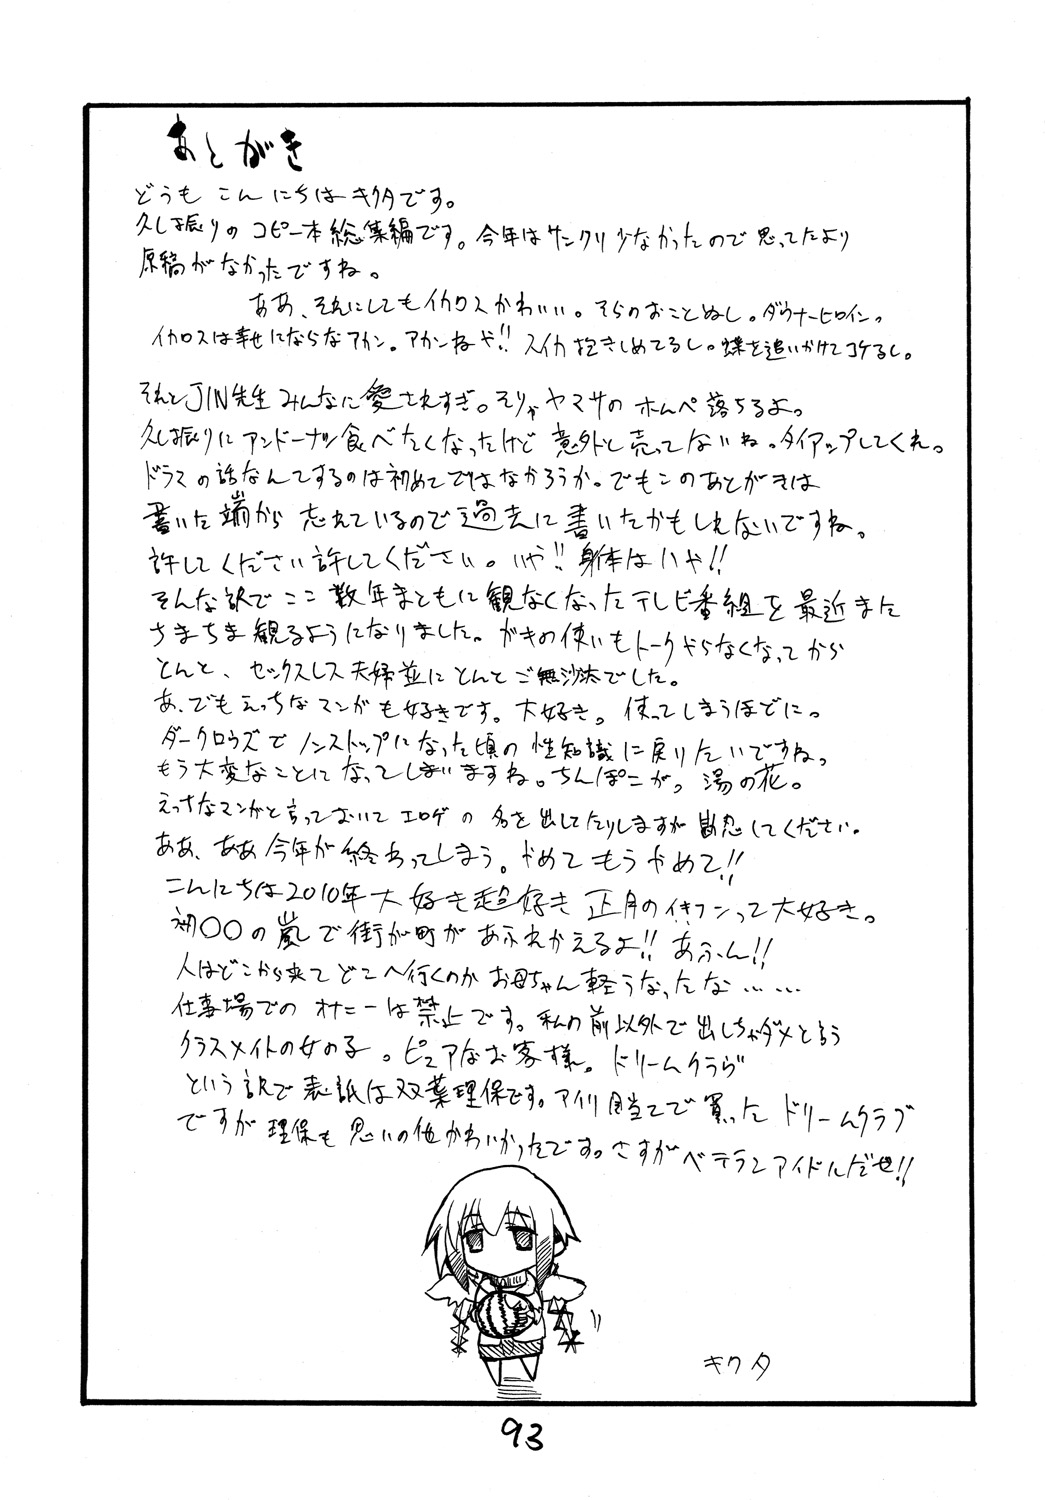 あとがき
どうも こんにちは キクタです。
久し振りの コピー本総集編です。今年は サンクリ 少なかったので 思ってたより
原稿がなかったですね。
ああ、それにしてもイカロスかわいい。そらのおとしもの。ダウナーヒロイン。
イカロスは幸せにならなアカン。アカンねや!! スイカ抱きしめてるし。蝶を追いかけてコケるし。
それと JIN先生 みんなに愛されすぎ。そりゃ ヤマサの ホムペ 落ちるよ。
久し振りに アンドーナツ 食べたくなったけど 意外と 売ってないね。タイアップしてくれ。
ドラマの話なんてするのは初めてではなかろうか。でもこのあとがきは
書いた端から 忘れているので 過去に書いたかもしれないですね。
許してください許してください。いや!! 身体はいや!!
そんな訳で ここ 数年まともに観なくなったテレビ番組を 最近また
ちまちま観るようになりました。ガキの使いもトークやらなくなってから
とんと、セックスレス夫婦並にとんとご無沙汰でした。
あ、でもえっちなマンガも好きです。大好き。使ってしまうほどに。
ダークロウズで ノンストップになった頃の 性知識に戻りたいですね。
もう大変なことになってしまいますね。ちんぽこが。湯の花。
えっちなマンガと言っておいて エロゲの 名を出してたりしますが 勘忍してください。
ああ、ああ今年が終わってしまう。やめて もう やめて!!
こんにちは2010年大好き超好き 正月の って大好き。
初〇〇の嵐で街が町が あふれかえるよ!! あふん!!
人はどこから来て どこへ行くのか お母ちゃん軽うなったな……
仕事場での オナニーは禁止です。私の前以外で出しちゃダメと言う
クラスメイトの女の子。ピュアなお客様。ドリームクラヴ
という訳で 表紙は双葉理保です。アイリ目当てで買った ドリームクラブ
ですが 理保も 思いの他かわいかったです。さすがベテランアイドルだぜ!!
キクタ
93